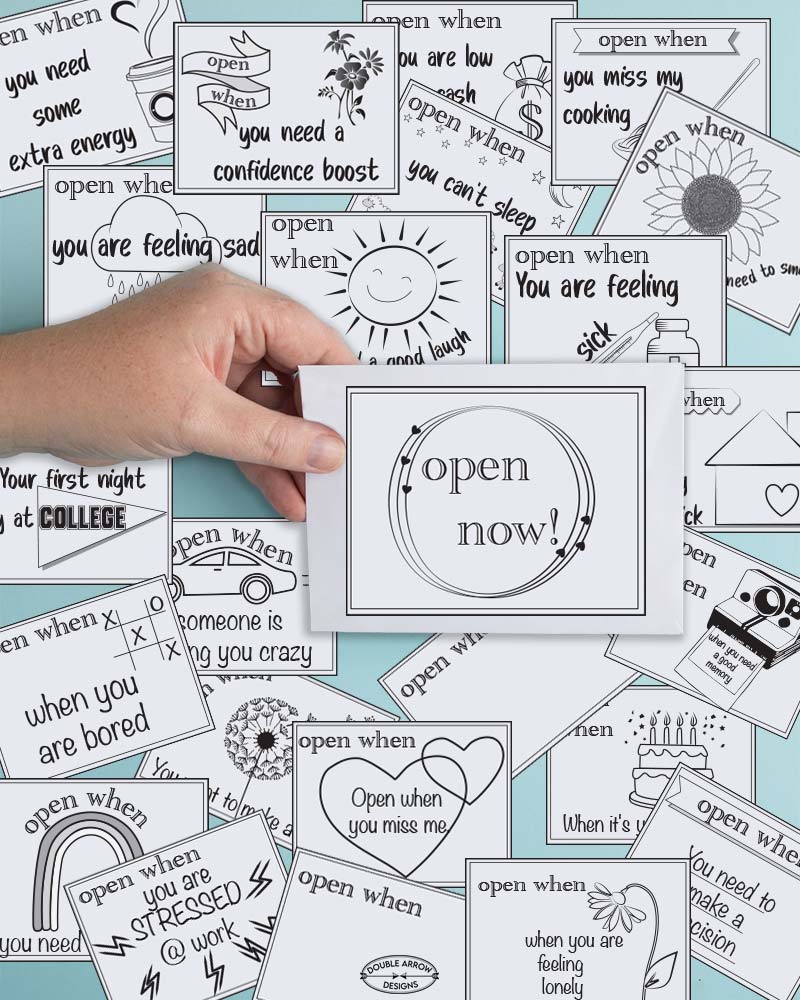 en when
you need
some
extra energy
open
when
you need a
confidence boost
open when
ou are low
cash
open when
you miss my
cooking
open when
you can't sleep
open when
need to sm
open when
you are feeling sad
open
when
a good laugh
open when
You are feeling
sick
open
now!
when
Your first night
y at COLLEGE
open when
someone is
ng you crazy
open
en
when you need
a good
memory
en when
X O
X
X
when you
are bored
open when
when
You
ot to make a
open when
Open when
you miss me
hen
When it's y
open when
You need to
make a
cision
open when
you need
open when
you are
STRESSED
@ work
open when
DOUBLE ARROW
DESIGNS
open when
when you are
feeling
lonely